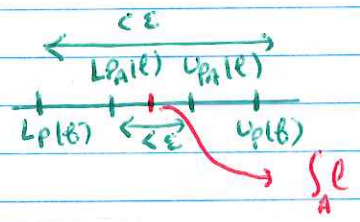 < ε
L_{P_A}(f) U_{P_A}(f)
L_P(f) < ε U_P(f)
∫_A f